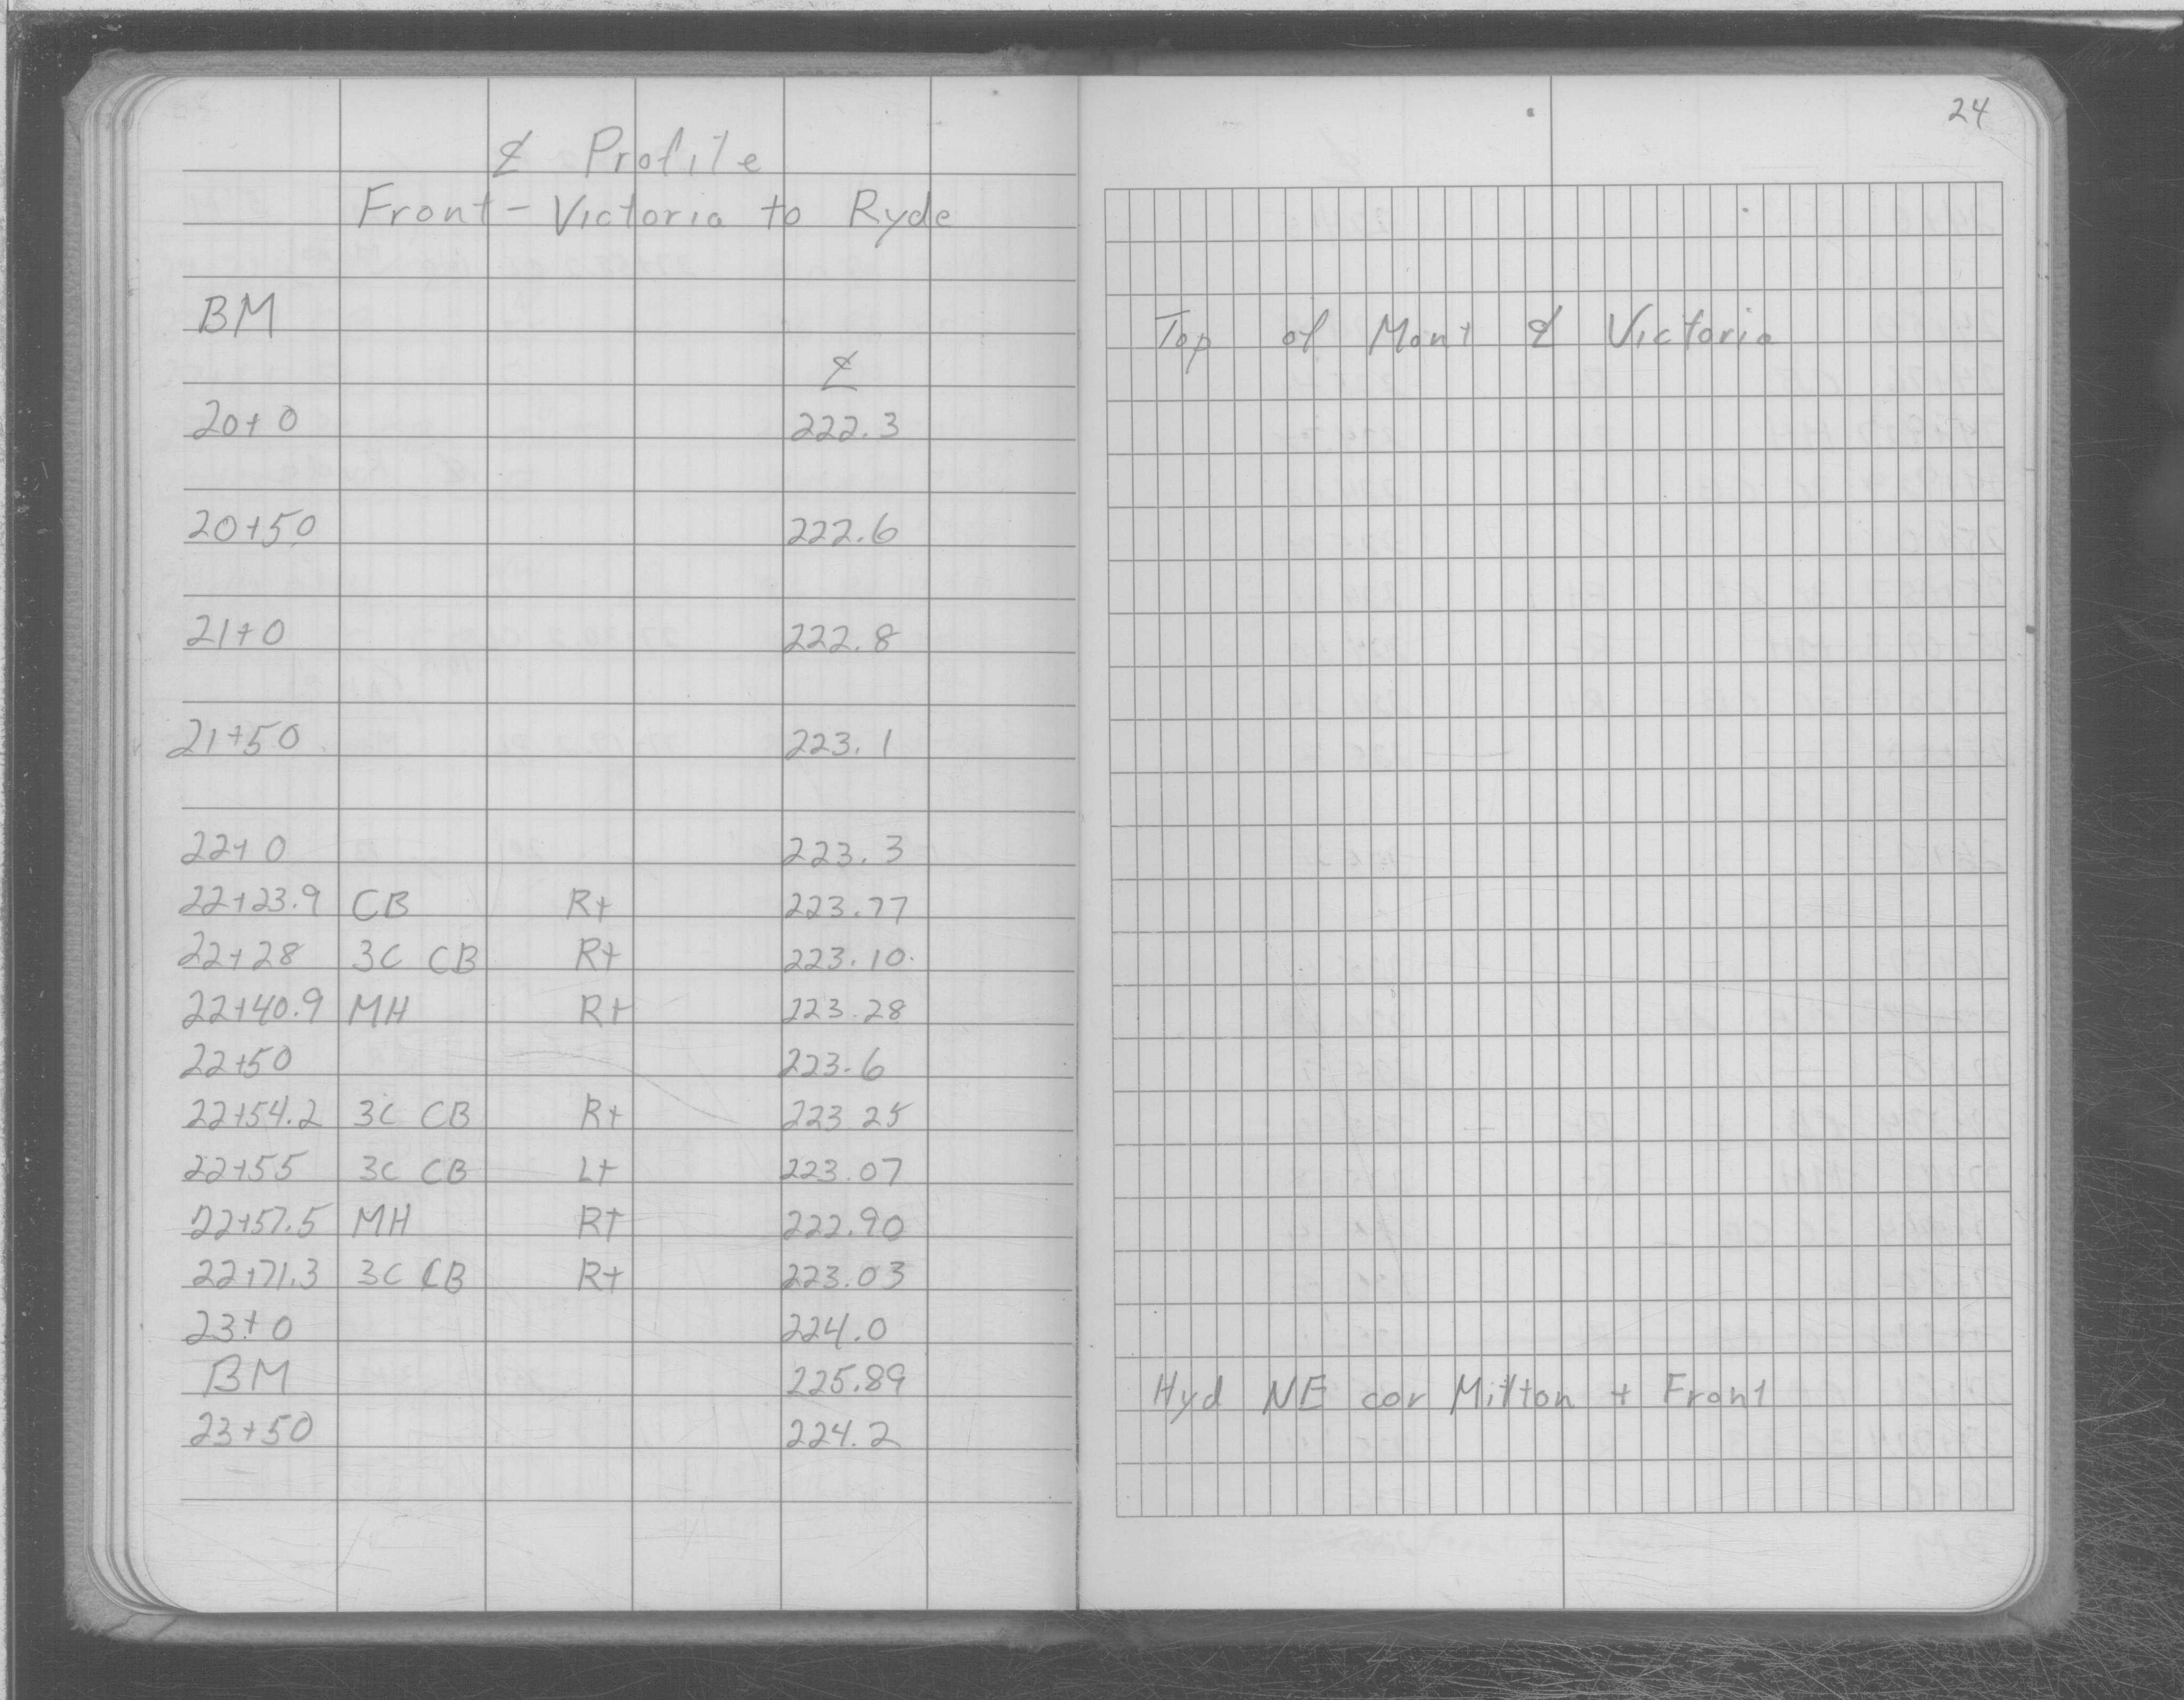 24
℄ Profile
Front - Victoria to Ryde
BM
Top of Mont ℄ Victoria
℄
20+0 222.3
20+50 222.6
21+0 222.8
21+50 223.1
22+0 223.3
22+23.9 CB Rt 223.77
22+28 3C CB Rt 223.10
22+40.9 MH Rt 223.28
22+50 223.6
22+54.2 3C CB Rt 223 25
22+55 3C CB Lt 223.07
22+57.5 MH Rt 222.90
22+71.3 3C CB Rt 223.03
23+0 224.0
BM 225.89 Hyd NE cor Milton + Front
23+50 224.2